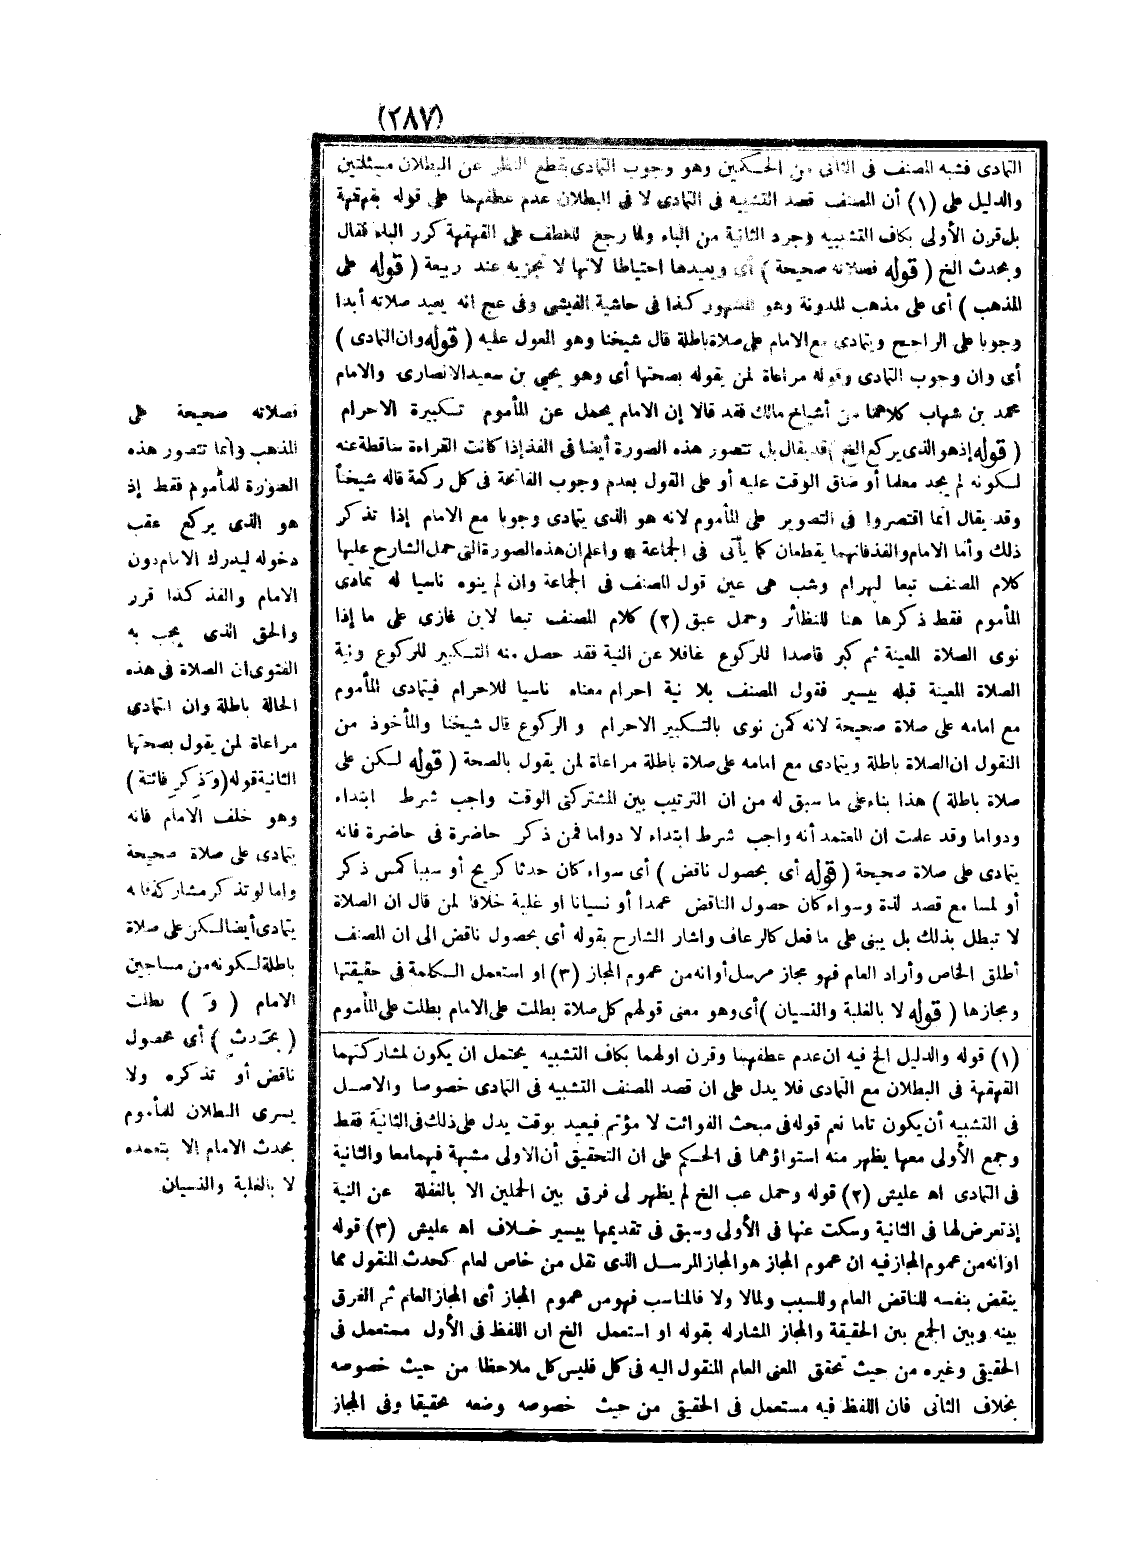 (٢٨٧)
التمادى فشبه المصنف فى الثانى من الحكمين وهو وجوب التمادى بقطع النظر عن البطلان مسئلتين
والدليل على (١) أن المصنف قصد التشبيه فى التمادى لا فى البطلان عدم عطفهما على قوله بقهقهة
بل قرن الأولى بكاف التشبيه وجرد الثانية من الباء ولما رجع للعطف على القهقهة كرر الباء فقال
وبحدث الخ ( قوله فصلاته صحيحة ) أى ويعيدها احتياطا لانها لا تجزيه عند ربيعة ( قوله على
المذهب ) أى على مذهب المدونة وهو المشهور كذا فى حاشية الفيشى وفى عج انه يعيد صلاته أبدا
وجوبا على الراجح ويتمادى مع الامام على صلاة باطلة قال شيخنا وهو المعول عليه ( قوله وان التمادى )
أى وان وجوب التمادى وقوله مراعاة لمن يقوله بصحتها أى وهو يحيى بن سعيد الانصارى والامام
محمد بن شهاب كلاهما من أشياخ مالك فقد قالا إن الامام يحمل عن المأموم تكبيرة الاحرام
( قوله إذ هو الذى يركع الخ ) قد يقال بل تتصور هذه الصورة أيضا فى الفذ إذا كانت القراءة ساقطة عنه
لكونه لم يجد معلما أو ضاق الوقت عليه أو على القول بعدم وجوب الفاتحة فى كل ركعة قاله شيخنا
وقد يقال انما اقتصروا فى التصوير على المأموم لانه هو الذى يتمادى وجوبا مع الامام إذا تذكر
ذلك وأما الامام والفذ فانهما يقطعان كما يأتى فى الجماعة * واعلم ان هذه الصورة التى حمل الشارح عليها
كلام المصنف تبعا لبهرام وشب هى عين قول المصنف فى الجماعة وان لم ينوه ناسيا له تمادى
المأموم فقط ذكرها هنا للنظائر وحمل عبق (٢) كلام المصنف تبعا لابن غازى على ما إذا
نوى الصلاة المعينة ثم كبر قاصدا للركوع غافلا عن النية فقد حصل منه التكبير للركوع ونية
الصلاة المعينة قبله بيسير فقول المصنف بلا نية احرام معناه ناسيا للاحرام فيتمادى المأموم
مع امامه على صلاة صحيحة لانه كمن نوى بالتكبير الاحرام والركوع قال شيخنا والمأخوذ من
النقول ان الصلاة باطلة ويتمادى مع امامه على صلاة باطلة مراعاة لمن يقول بالصحة ( قوله لكن على
صلاة باطلة ) هذا بناء على ما سبق له من ان الترتيب بين المشتركتى الوقت واجب شرط ابتداء
ودواما وقد علمت ان المعتمد أنه واجب شرط ابتداء لا دواما فمن ذكر حاضرة فى حاضرة فانه
يتمادى على صلاة صحيحة ( قوله أى بحصول ناقض ) أى سواء كان حدثا كريح أو سببا كمس ذكر
أو لمسا مع قصد لذة وسواء كان حصول الناقض عمدا أو نسيانا او غلبة خلافا لمن قال ان الصلاة
لا تبطل بذلك بل يبنى على ما فعل كالرعاف واشار الشارح بقوله أى بحصول ناقض الى ان المصنف
أطلق الخاص وأراد العام فهو مجاز مرسل أوانه من عموم المجاز (٣) او استعمل الكلمة فى حقيقتها
ومجازها ( قوله لا بالغلبة والنسيان ) أى وهو معنى قولهم كل صلاة بطلت على الامام بطلت على المأموم
(١) قوله والدليل الخ فيه ان عدم عطفهما وقرن اولهما بكاف التشبيه يحتمل ان يكون لمشاركتهما
القهقهة فى البطلان مع التمادى فلا يدل على ان قصد المصنف التشبيه فى التمادى خصوصا والاصل
فى التشبيه أن يكون تاما نعم قوله فى مبحث الفوائت لا مؤتم فيعيد بوقت يدل على ذلك فى الثانية فقط
وجمع الأولى معها يظهر منه استواؤهما فى الحكم على ان التحقيق أن الاولى مشبهة فيهما معا والثانية
فى التمادى اه عليش (٢) قوله وحمل عب الخ لم يظهر لى فرق بين الحملين الا بالغفلة عن النية
إذ تعرض لها فى الثانية وسكت عنها فى الأولى وسبق فى تقديمها بيسير خلاف اه عليش (٣) قوله
اوانه من عموم المجاز فيه ان عموم المجاز هو المجاز المرسل الذى نقل من خاص لعام كحدث المنقول مما
ينقض بنفسه للناقض العام وللسبب ولمالا ولا فالمناسب فهو من عموم المجاز أى المجاز العام ثم الفرق
بينه وبين الجمع بين الحقيقة والمجاز المشار له بقوله او استعمل الخ ان اللفظ فى الأول مستعمل فى
الحقيقى وغيره من حيث تحقق المعنى العام المنقول اليه فى كل فليس كل ملاحظا من حيث خصوصه
بخلاف الثانى فان اللفظ فيه مستعمل فى الحقيقى من حيث خصوصه وضعه تحقيقا وفى المجاز
فصلاته صحيحة على
المذهب وانما تتصور هذه
الصورة للمأموم فقط إذ
هو الذى يركع عقب
دخوله ليدرك الامام دون
الامام والفذ كذا قرر
والحق الذى يجب به
الفتوى ان الصلاة فى هذه
الحالة باطلة وان التمادى
مراعاة لمن يقول بصحتها
الثانية قوله (وَذِكرِ فائتة)
وهو خلف الامام فانه
يتمادى على صلاة صحيحة
واما لو تذكر مشاركة فانه
يتمادى أيضا لكن على صلاة
باطلة لكونه من مساجين
الامام ( وَ ) بطلت
( بحَدثٍ ) أى بحصول
ناقض أو تذكره ولا
يسرى البطلان للمأموم
بحدث الامام إلا بتعمده
لا بالغلبة والنسيان